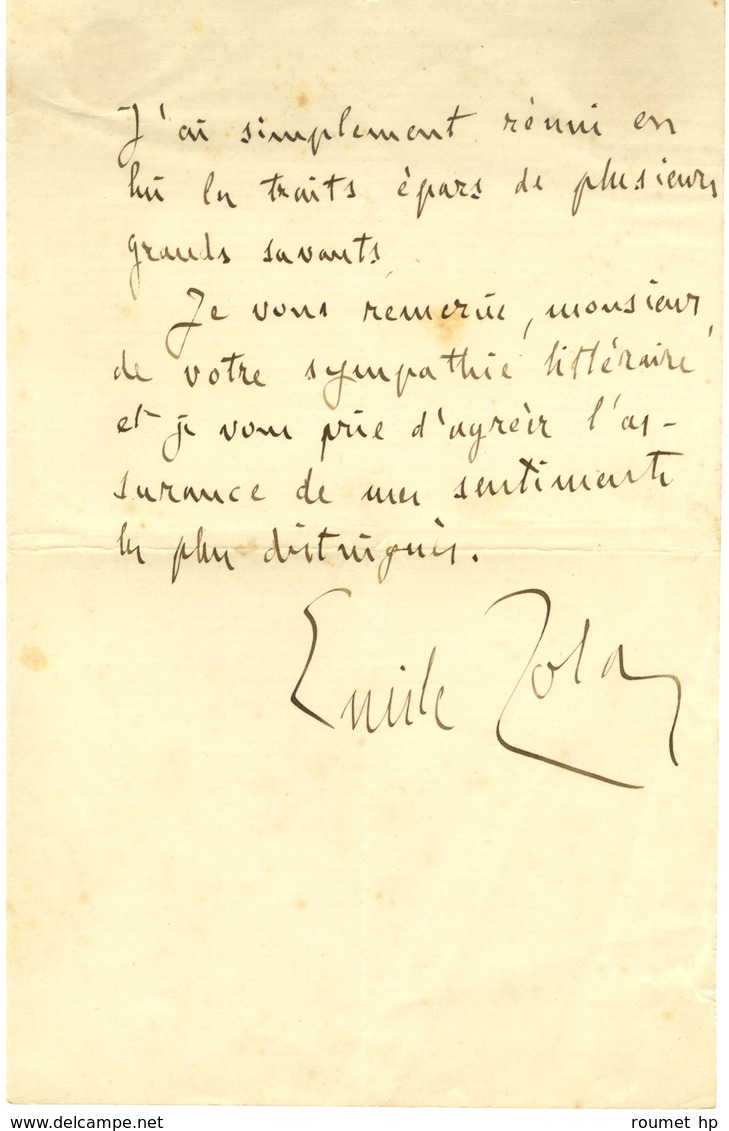 J'ai simplement réuni en
lui les traits épars de plusieurs
grands savants.
Je vous remercie, monsieur,
de votre sympathie littéraire
et je vous prie d'agréer l'as-
surance de mes sentiments
les plus distingués.
Emile Zola
www.delcampe.net
roumet hp